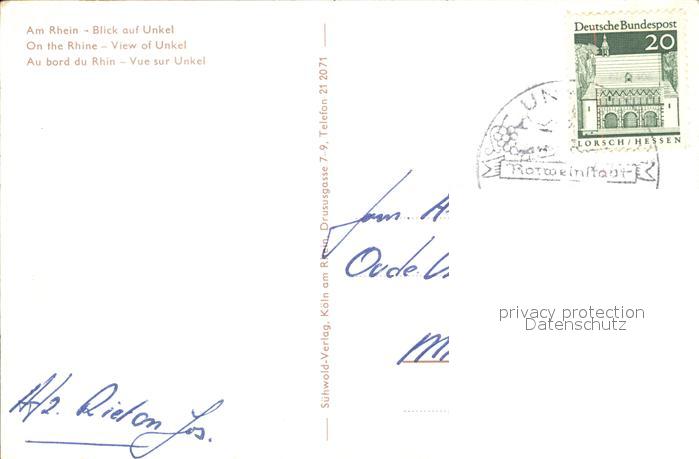 Am Rhein – Blick auf Unkel
On the Rhine – View of Unkel
Au bord du Rhin – Vue sur Unkel
Sühwold-Verlag, Köln am Rhein, Drususgasse 7–9, Telefon 21 20 71
Deutsche Bundespost
20
LORSCH/HESSEN
UN
K
Rotweinstadt
Fam.
Oude
privacy protection
Datenschutz